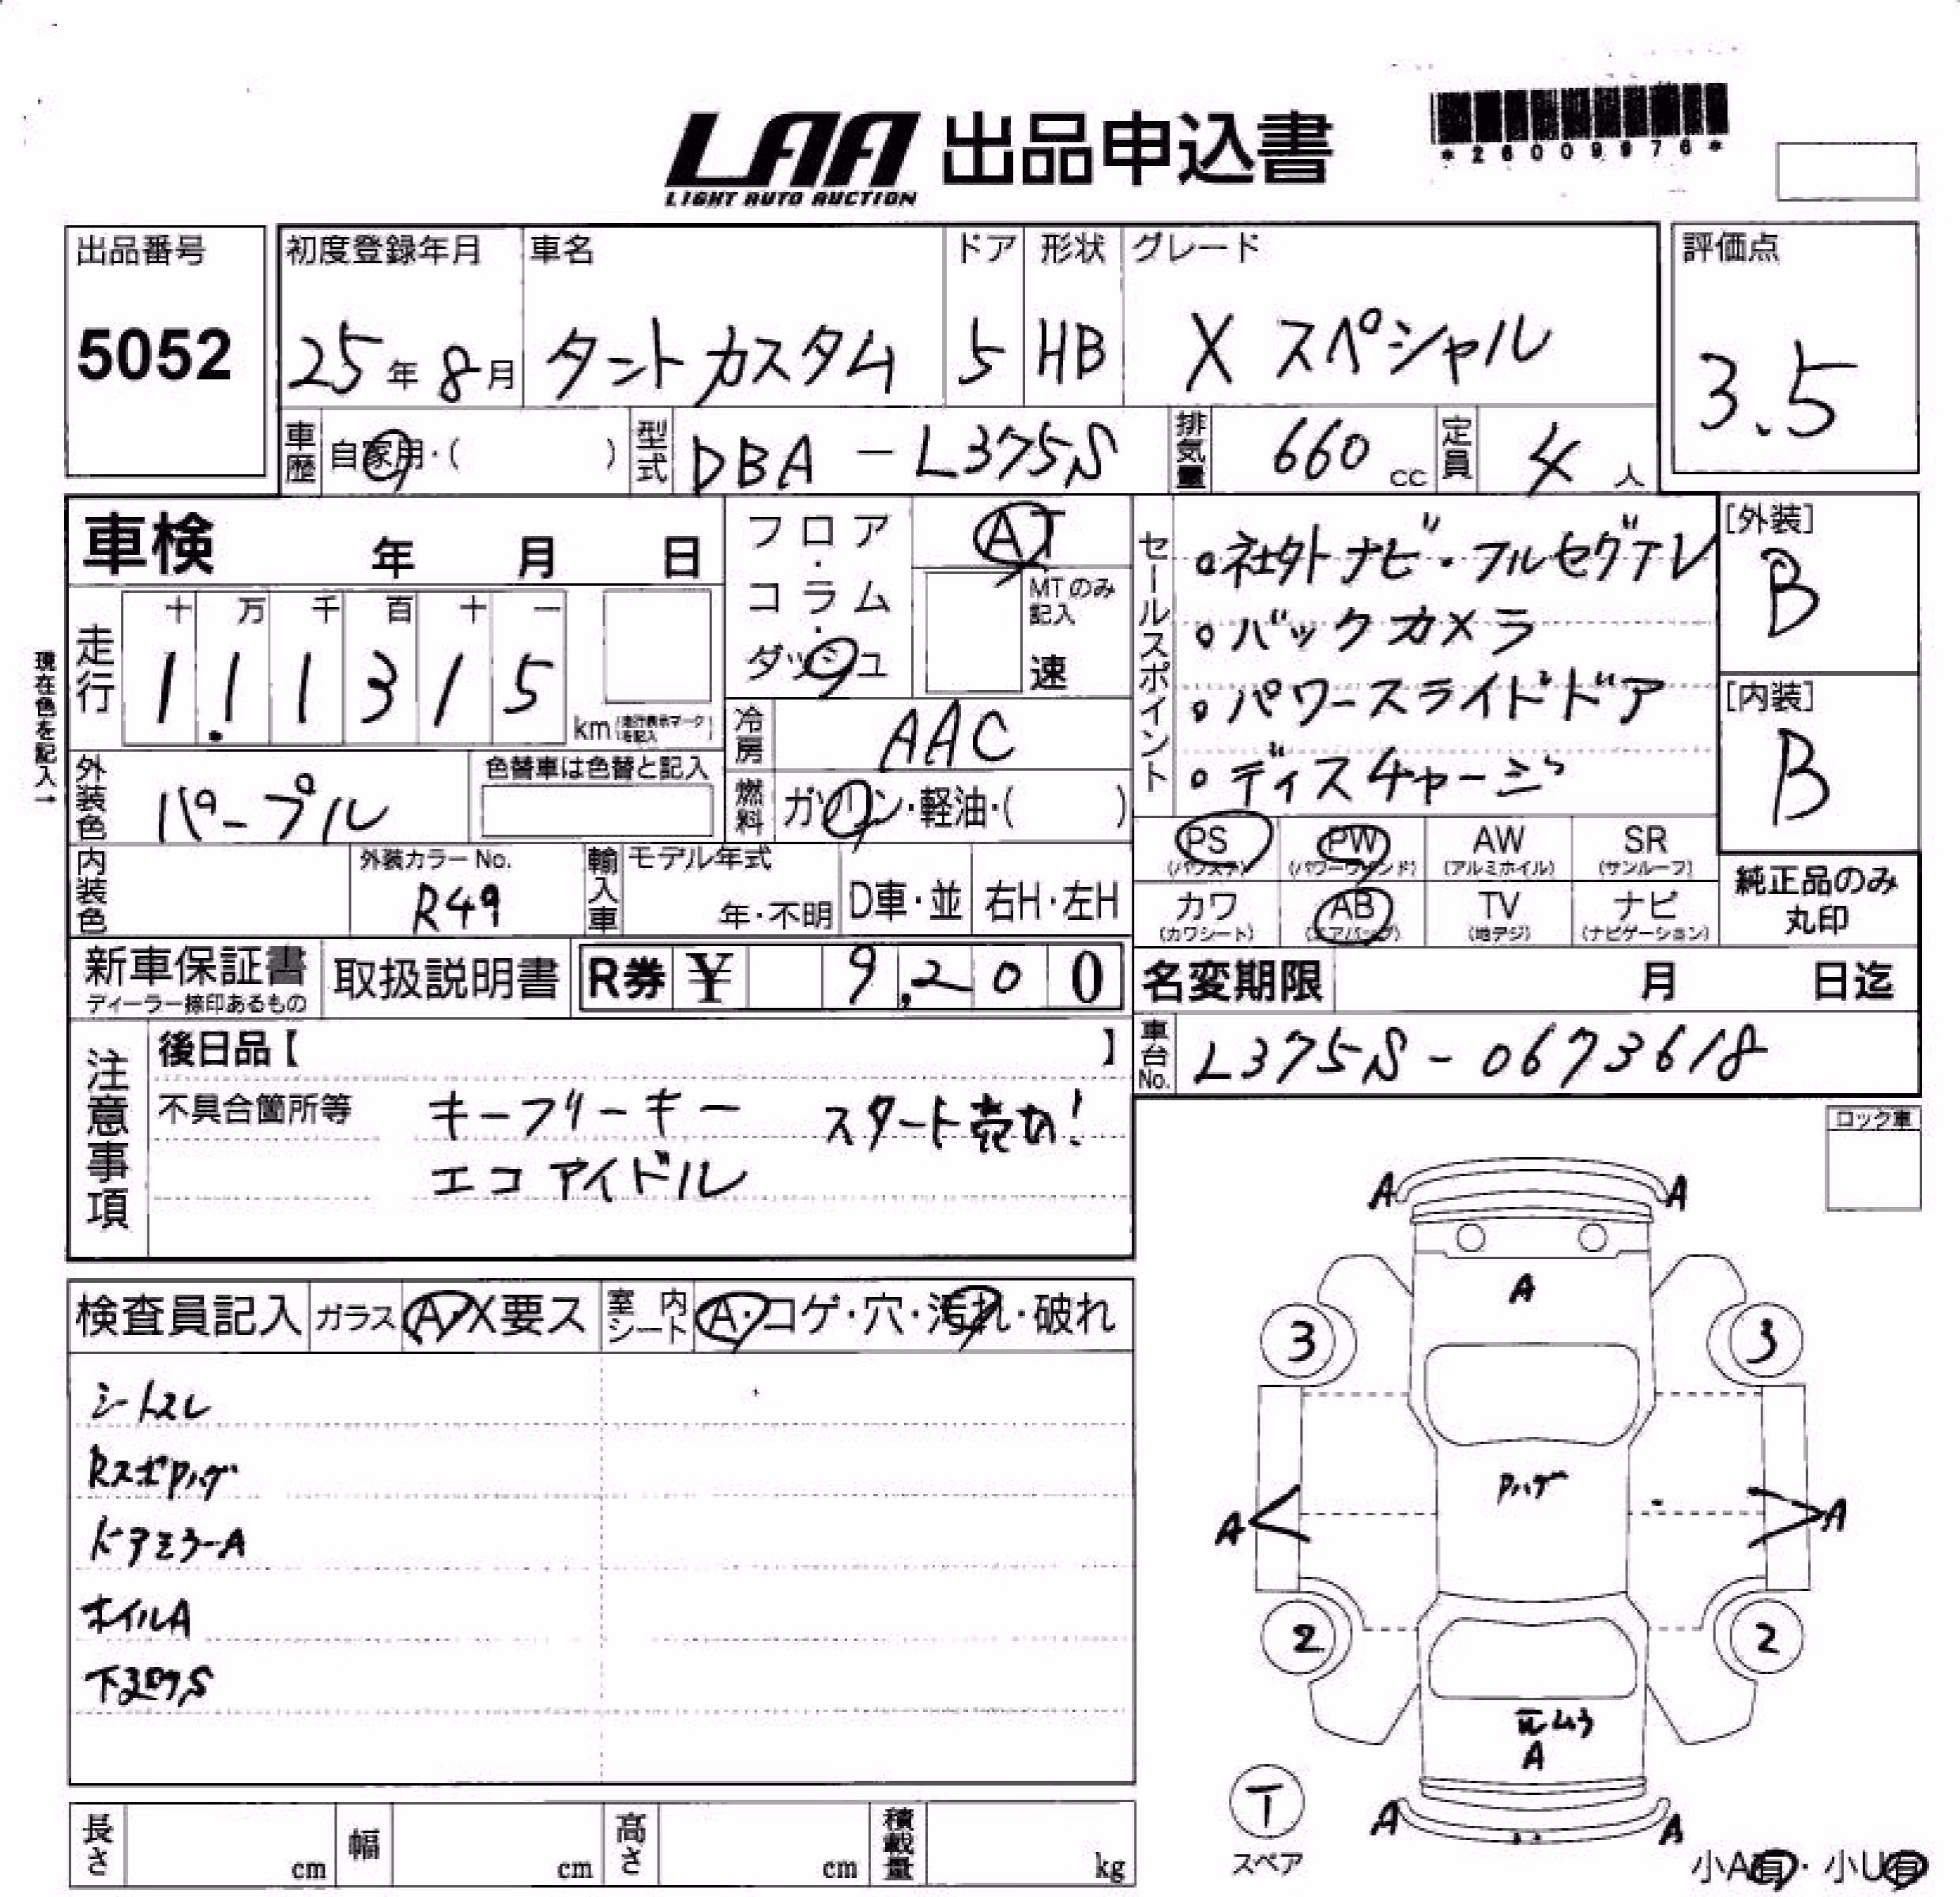 LAA 出品申込書
LIGHT AUTO AUCTION
*26009976*
出品番号
5052
初度登録年月 車名 ドア 形状 グレード
25年8月 タントカスタム 5 HB X スペシャル
評価点
3.5
車歴 自家用・( ) 型式 DBA-L375S 排気量 660 cc 定員 4人
車検 年 月 日
フロア・コラム・ダッシュ
AT
MTのみ記入
速
現在色を記入→
走行 十 万 千 百 十 一
1 1. 1 3 1 5 km (走行表示マークを記入)
冷房 AAC
燃料 ガソリン・軽油・( )
外装色 パープル
色替車は色替と記入
内装色
外装カラーNo.
R49
輸入車 モデル年式
年・不明 D車・並 右H・左H
セールスポイント
・社外ナビ・フルセグTV
・バックカメラ
・パワースライドドア
・ディスチャージ
PS (パワステ) PW (パワーウィンド) AW (アルミホイル) SR (サンルーフ)
カワ (カワシート) AB (エアバッグ) TV (地デジ) ナビ (ナビゲーション)
[外装]
B
[内装]
B
純正品のみ
丸印
新車保証書
ディーラー捺印あるもの
取扱説明書 R券 ¥ 9,200
名変期限 月 日迄
車台No. L375S-0673618
注意事項
後日品【 】
不具合箇所等 キーフリーキー スタート売切!
エコアイドル
ロック車
検査員記入 ガラス A・X要ス 室内シート A・コゲ・穴・汚れ・破れ
シートスレ
RスポPハゲ
ドアミラーA
ホイルA
下廻りS
A A
A
3 3
Pハゲ
A A
2 2
元ムラ
A
A A
T
スペア
小A有・小U有
長さ cm 幅 cm 高さ cm 積載量 kg